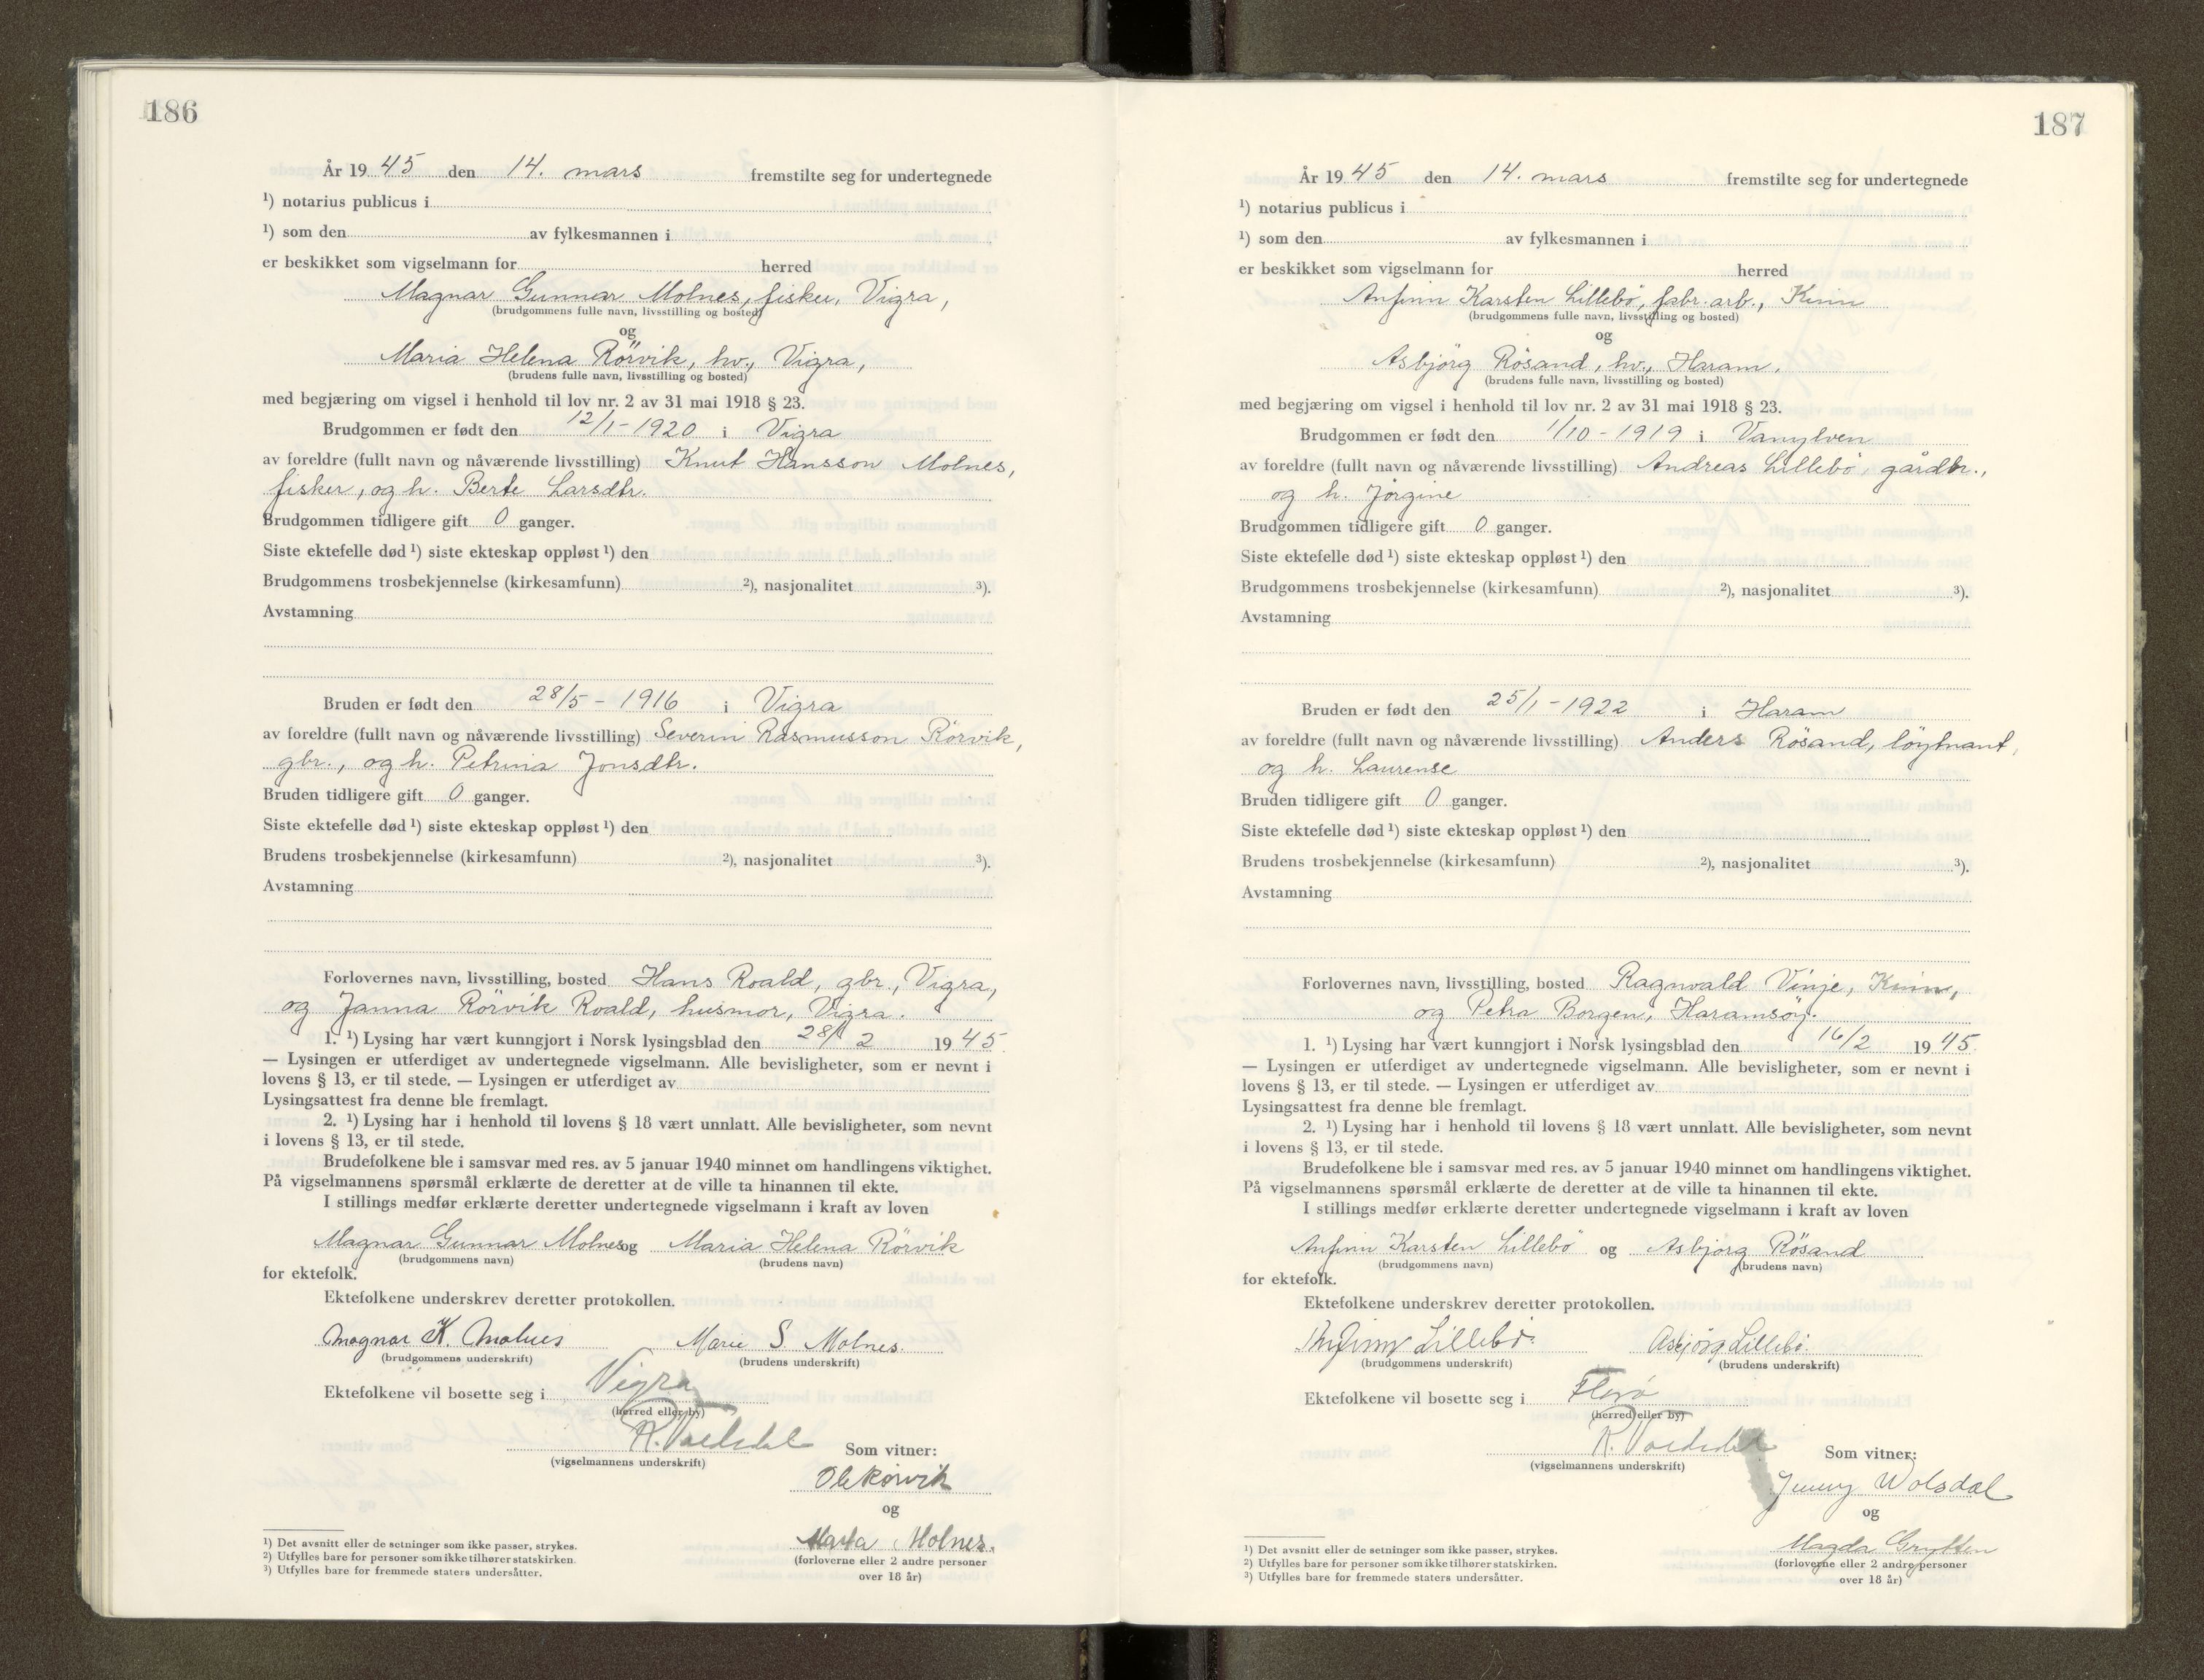 186
År 19 45 den 14. mars fremstilte seg for undertegnede
¹) notarius publicus i
¹) som den av fylkesmannen i
er beskikket som vigselmann for herred
Magnar Gunnar Molnes, fisker, Vigra,
(brudgommens fulle navn, livsstilling og bosted)
og
Maria Helena Rörvik, hv., Vigra,
(brudens fulle navn, livsstilling og bosted)
med begjæring om vigsel i henhold til lov nr. 2 av 31 mai 1918 § 23.
Brudgommen er født den 12/1-1920 i Vigra
av foreldre (fullt navn og nåværende livsstilling) Knut Hansson Molnes,
fisker, og h. Berte Larsdtr.
Brudgommen tidligere gift 0 ganger.
Siste ektefelle død ¹) siste ekteskap oppløst ¹) den
Brudgommens trosbekjennelse (kirkesamfunn) ²), nasjonalitet ³).
Avstamning
Bruden er født den 28/5 - 1916 i Vigra
av foreldre (fullt navn og nåværende livsstilling) Severin Rasmusson Rörvik,
gbr., og h. Petrina Jonsdtr.
Bruden tidligere gift 0 ganger.
Siste ektefelle død ¹) siste ekteskap oppløst ¹) den
Brudens trosbekjennelse (kirkesamfunn) ²), nasjonalitet ³).
Avstamning
Forlovernes navn, livsstilling, bosted Hans Roald, gbr., Vigra,
og Janna Rörvik Roald, husmor, Vigra.
1. ¹) Lysing har vært kunngjort i Norsk lysingsblad den 28/2 19 45
— Lysingen er utferdiget av undertegnede vigselmann. Alle bevisligheter, som er nevnt i
lovens § 13, er til stede. — Lysingen er utferdiget av
Lysingsattest fra denne ble fremlagt.
2. ¹) Lysing har i henhold til lovens § 18 vært unnlatt. Alle bevisligheter, som nevnt
i lovens § 13, er til stede.
Brudefolkene ble i samsvar med res. av 5 januar 1940 minnet om handlingens viktighet.
På vigselmannens spørsmål erklærte de deretter at de ville ta hinannen til ekte.
I stillings medfør erklærte deretter undertegnede vigselmann i kraft av loven
Magnar Gunnar Molnes og Maria Helena Rörvik
(brudgommens navn) (brudens navn)
for ektefolk.
Ektefolkene underskrev deretter protokollen.
Magnar K. Molnes Marie S. Molnes.
(brudgommens underskrift) (brudens underskrift)
Ektefolkene vil bosette seg i Vigra
(herred eller by)
R. (vigselmannens underskrift) Som vitner:
Ole Rörvik
og
Marta Molnes.
(forloverne eller 2 andre personer
over 18 år)
¹) Det avsnitt eller de setninger som ikke passer, strykes.
²) Utfylles bare for personer som ikke tilhører statskirken.
³) Utfylles bare for fremmede staters undersåtter.
187
År 19 45 den 14. mars fremstilte seg for undertegnede
¹) notarius publicus i
¹) som den av fylkesmannen i
er beskikket som vigselmann for herred
Anfinn Karsten Lillebö, fabr. arb., Kinn
(brudgommens fulle navn, livsstilling og bosted)
og
Asbjörg Rösand, hv., Haram.
(brudens fulle navn, livsstilling og bosted)
med begjæring om vigsel i henhold til lov nr. 2 av 31 mai 1918 § 23.
Brudgommen er født den 1/10 - 1919 i Vanylven
av foreldre (fullt navn og nåværende livsstilling) Andreas Lillebö, gårdbr.,
og h. Jörgine
Brudgommen tidligere gift 0 ganger.
Siste ektefelle død ¹) siste ekteskap oppløst ¹) den
Brudgommens trosbekjennelse (kirkesamfunn) ²), nasjonalitet ³).
Avstamning
Bruden er født den 25/1 - 1922 i Haram
av foreldre (fullt navn og nåværende livsstilling) Anders Rösand, löytnant,
og h. Laurense
Bruden tidligere gift 0 ganger.
Siste ektefelle død ¹) siste ekteskap oppløst ¹) den
Brudens trosbekjennelse (kirkesamfunn) ²), nasjonalitet ³).
Avstamning
Forlovernes navn, livsstilling, bosted Ragnvald Vinje, Kinn,
og Petra Borgen, Haramsöy.
1. ¹) Lysing har vært kunngjort i Norsk lysingsblad den 16/2 19 45.
— Lysingen er utferdiget av undertegnede vigselmann. Alle bevisligheter, som er nevnt i
lovens § 13, er til stede. — Lysingen er utferdiget av
Lysingsattest fra denne ble fremlagt.
2. ¹) Lysing har i henhold til lovens § 18 vært unnlatt. Alle bevisligheter, som nevnt
i lovens § 13, er til stede.
Brudefolkene ble i samsvar med res. av 5 januar 1940 minnet om handlingens viktighet.
På vigselmannens spørsmål erklærte de deretter at de ville ta hinannen til ekte.
I stillings medfør erklærte deretter undertegnede vigselmann i kraft av loven
Anfinn Karsten Lillebö og Asbjörg Rösand
(brudgommens navn) (brudens navn)
for ektefolk.
Ektefolkene underskrev deretter protokollen.
Anfinn Lillebö. Asbjörg Lillebö.
(brudgommens underskrift) (brudens underskrift)
Ektefolkene vil bosette seg i Florö
(herred eller by)
R. (vigselmannens underskrift) Som vitner:
Jenny Wolsdal
og
Magda Grytten
(forloverne eller 2 andre personer
over 18 år)
¹) Det avsnitt eller de setninger som ikke passer, strykes.
²) Utfylles bare for personer som ikke tilhører statskirken.
³) Utfylles bare for fremmede staters undersåtter.